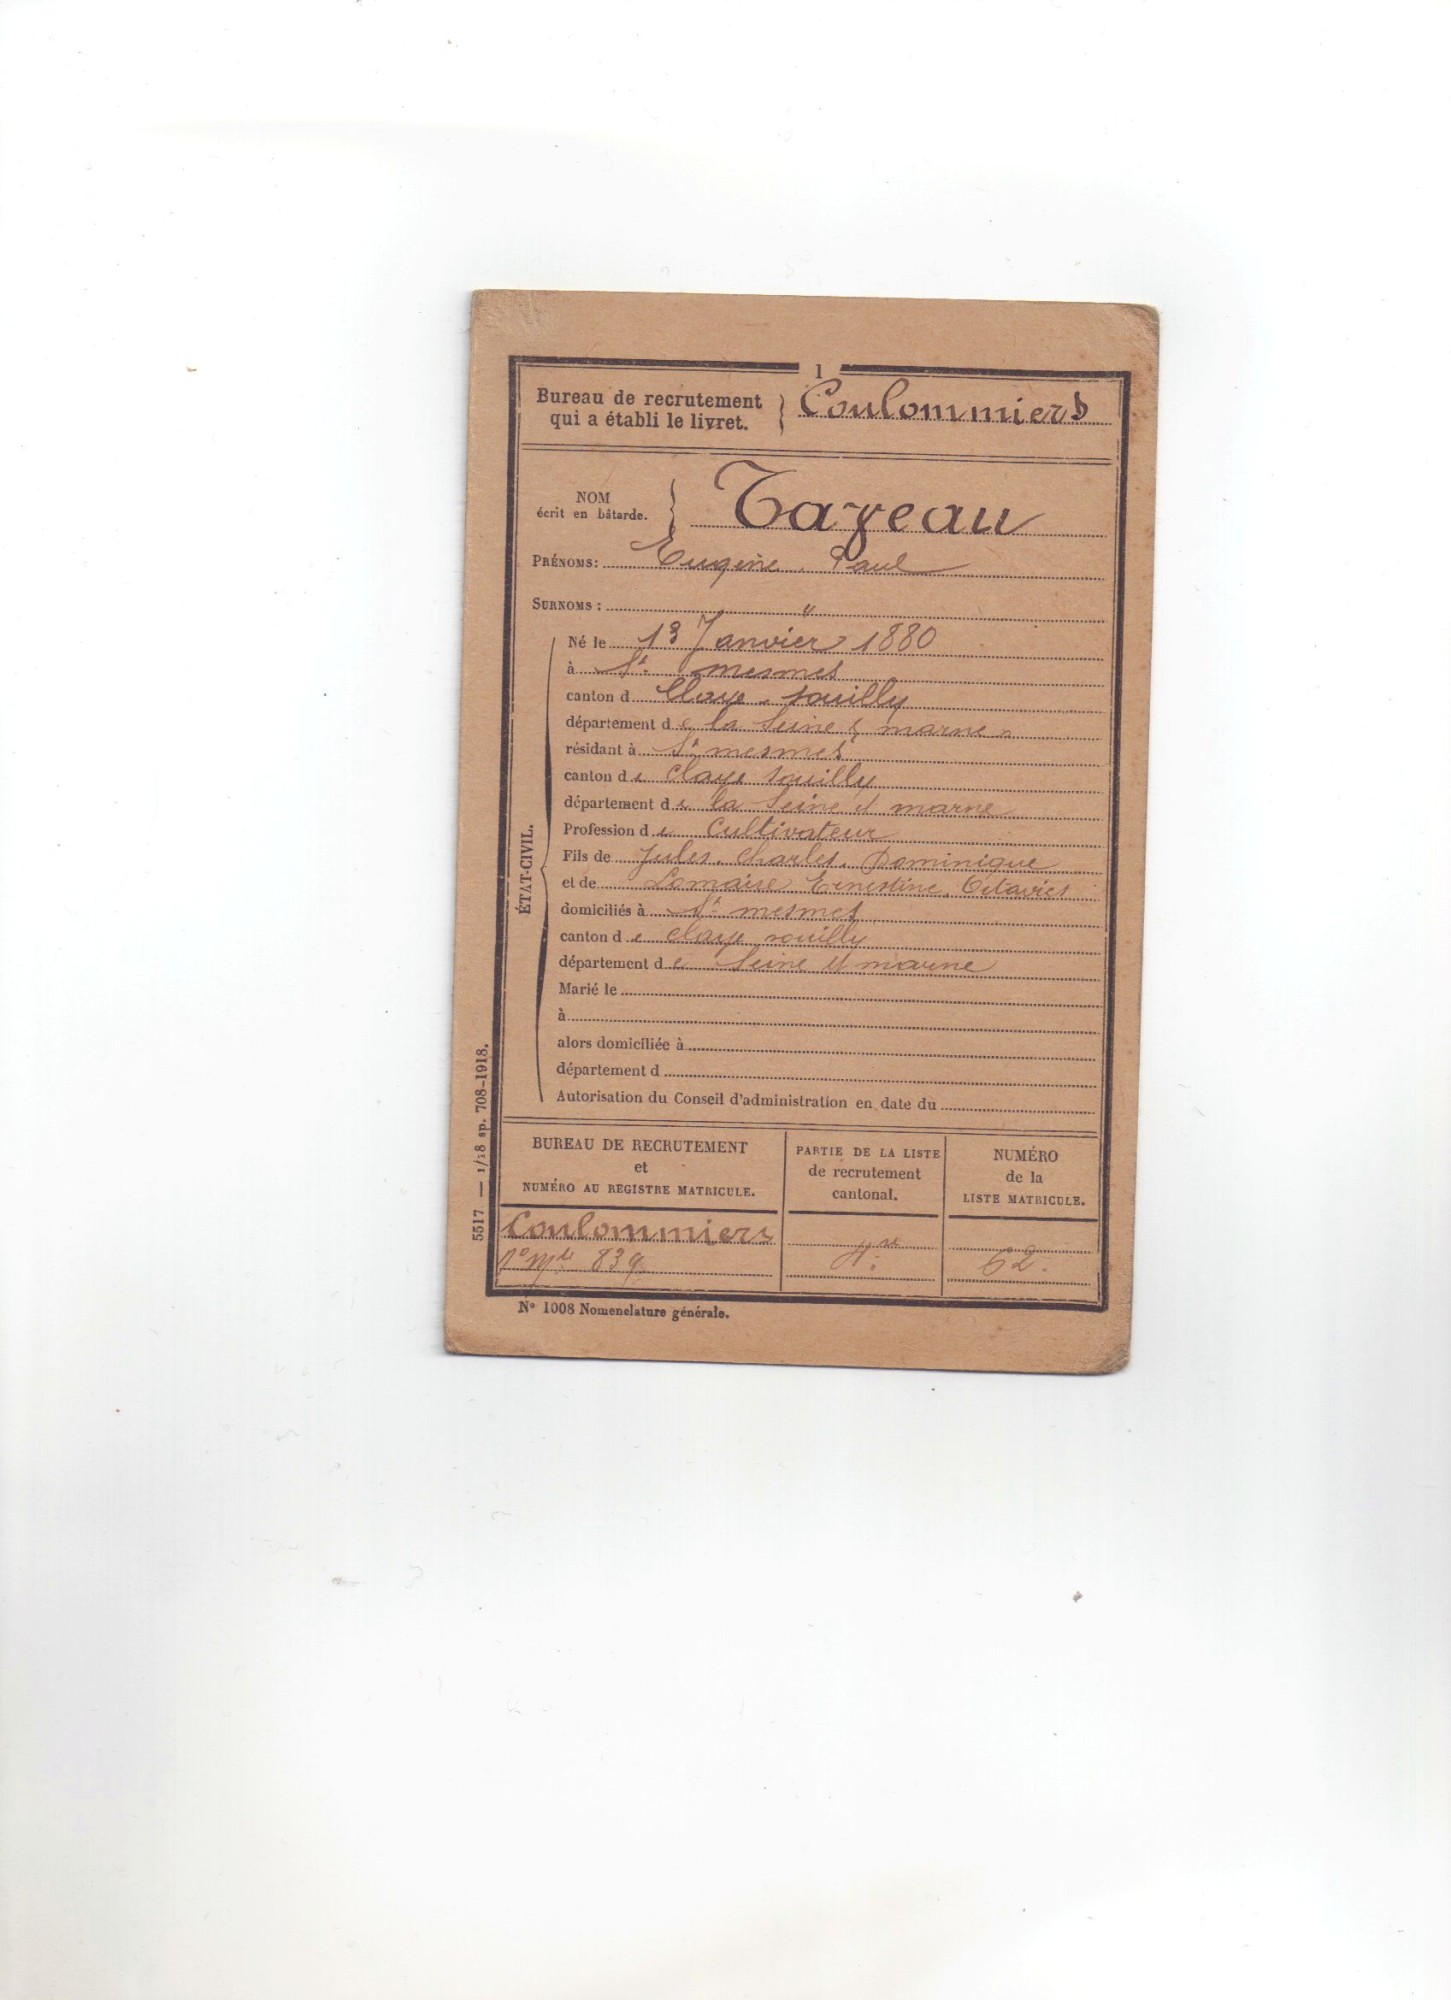 1
Bureau de recrutement
qui a établi le livret. } Coulommiers
NOM
écrit en bâtarde. } Tazeau
PRÉNOMS: Eugène, Paul
SURNOMS : "
ÉTAT-CIVIL.
Né le 13 Janvier 1880
à St mesmes
canton d Claye-Souilly
département de la Seine & marne
résidant à St mesmes
canton de Claye Souilly
département de la Seine et marne
Profession de Cultivateur
Fils de Jules, Charles, Dominique
et de Ernestine, Octavie
domiciliés à St mesmes
canton de Claye souilly
département de Seine et marne
Marié le
à
alors domiciliée à
département d
Autorisation du Conseil d'administration en date du
BUREAU DE RECRUTEMENT
et
NUMÉRO AU REGISTRE MATRICULE.
PARTIE DE LA LISTE
de recrutement
cantonal.
NUMÉRO
de la
LISTE MATRICULE.
Coulommiers
no mle 839 62.
5517 — 1/18 sp. 708-1918.
N° 1008 Nomenclature générale.